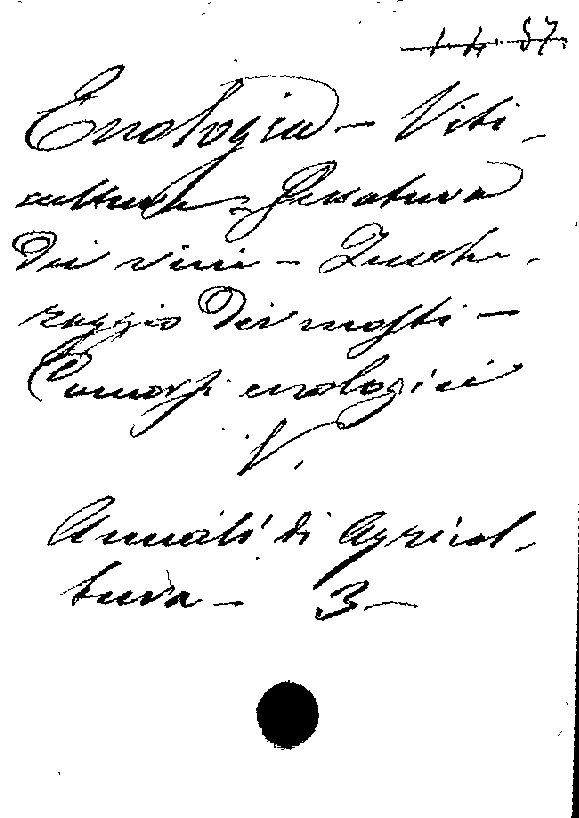 1. 4. 57.
Enologia - Viti-
cultura - Gessatura
dei vini - Zucche-
raggio dei mosti -
Comizi enologici
V.
Annali di Agricol-
tura - 3 -